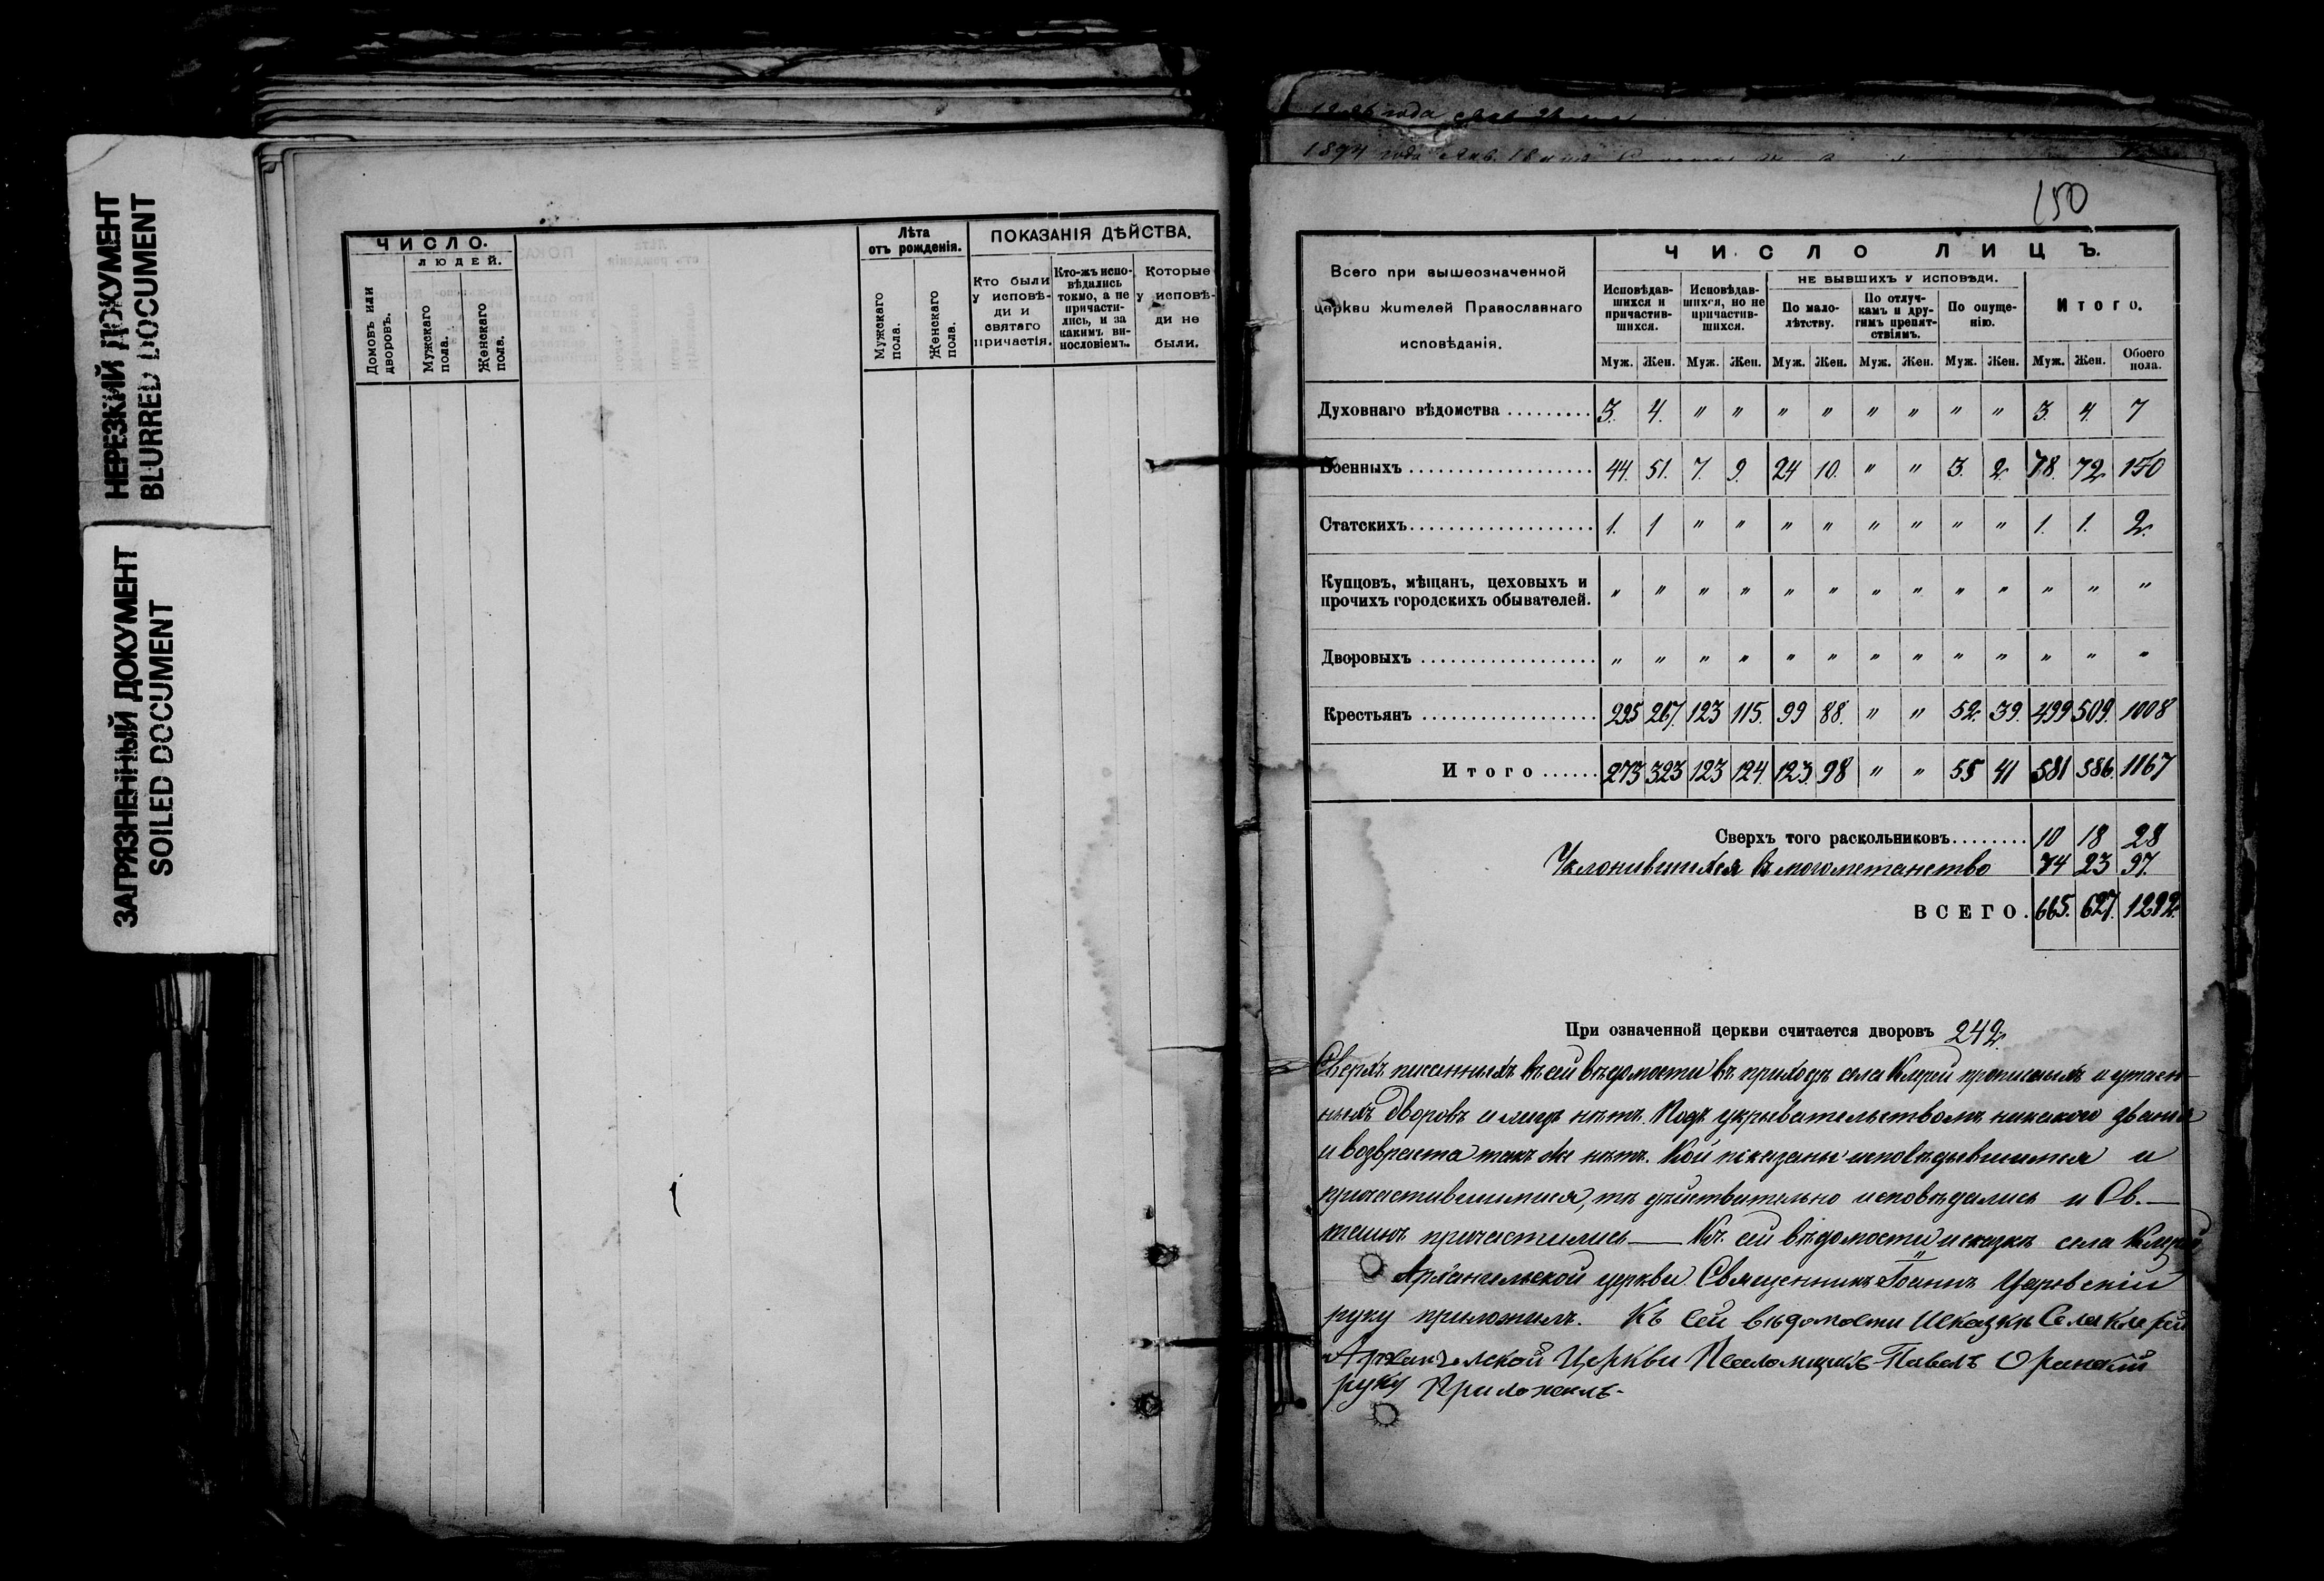 НЕРЕЗКИЙ ДОКУМЕНТ
BLURRED DOCUMENT
ЗАГРЯЗНЕННЫЙ ДОКУМЕНТ
SOILED DOCUMENT
ЧИСЛО.
ЛЮДЕЙ.
Домовъ или дворовъ.
Мужскаго пола.
Женскаго пола.
Лѣта отъ рожденія.
Мужскаго пола.
Женскаго пола.
ПОКАЗАНІЯ ДѢЙСТВА.
Кто были у исповѣ-ди и святаго причастія.
Кто-жъ испо-вѣдались токмо, а не причасти-лись, и за какимъ ви-нословіемъ.
Которые у исповѣ-ди не были.
1894 года
150
Всего при вышеозначенной церкви жителей Православнаго исповѣданія.
ЧИСЛО ЛИЦЪ.
Исповѣдав-шихся и причастив-шихся.
Исповѣдав-шихся, но не причастив-шихся.
НЕ БЫВШИХЪ У ИСПОВѢДИ.
По мало-лѣтству.
По отлуч-камъ и дру-гимъ препят-ствіямъ.
По опуще-нію.
Итого.
Муж. Жен. Муж. Жен. Муж. Жен. Муж. Жен. Муж. Жен. Муж. Жен. Обоего пола.
Духовнаго вѣдомства ......... 3. 4. " " " " " " " " 3. 4. 7
Военныхъ ................... 44. 51. 7. 9. 24 10. " " 3. 2. 78. 72 150
Статскихъ................... 1. 1 " " " " " " " " 1. 1. 2.
Купцовъ, мѣщанъ, цеховыхъ и
прочихъ городскихъ обывателей. " " " " " " " " " " " " "
Дворовыхъ .................. " " " " " " " " " " " " "
Крестьянъ .................. 225 267. 123 115. 99 88. " " 52. 39. 499 509. 1008
Итого...... 273 323 123 124. 123. 98 " " 55 41 581 586. 1167
Сверхъ того раскольниковъ........ 10 18 28
Уклонившихся въ могометанство 74 23 97.
ВСЕГО. 665. 627. 1292.
При означенной церкви считается дворовъ 242.
Сверхъ писанныхъ въ сей вѣдомости въ приходѣ села Ключей прописныхъ и утаен-
ныхъ дворовъ и лицъ нѣтъ. Подъ укрывательствомъ никакого званія
и возвраста такъ же нѣтъ. Кои показаны исповѣдывшимися и
причастившимися, тѣ дѣйствительно исповѣдались и Св.—
таинъ причастились — Къ сей вѣдомости и сказкѣ села
Архангельской церкви Священникъ Іоаннъ
руку приложилъ. Къ сей вѣдомости и сказкѣ Села
Архангелской Церкви Псаломщикъ Павелъ
руку Приложилъ-